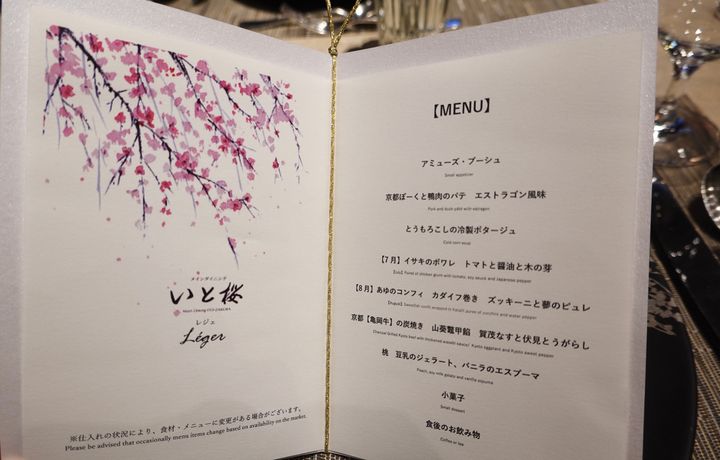 メインダイニング
いと桜
Main Dining ITO-ZAKURA
レジェ
Léger
※仕入れの状況により、食材・メニューに変更がある場合がございます。
Please be advised that occasionally menu items change based on availability on the market.
【MENU】
アミューズ・ブーシュ
Small appetizer
京都ぽーくと鴨肉のパテ エストラゴン風味
Pork and duck pâté with estragon
とうもろこしの冷製ポタージュ
Cold corn soup
【7月】イサキのポワレ トマトと醤油と木の芽
【July】Poiret of chicken grunt with tomato, soy sauce and Japanese pepper
【8月】あゆのコンフィ カダイフ巻き ズッキーニと蓼のピュレ
【August】Sweetfish confit wrapped in Kataifi puree of zucchini and water pepper
京都【亀岡牛】の炭焼き 山葵鼈甲餡 賀茂なすと伏見とうがらし
Charcoal Grilled Kyoto beef with thickened wasabi sauce/ Kyoto eggplant and Kyoto sweet pepper
桃 豆乳のジェラート、バニラのエスプーマ
Peach, soy milk gelato and vanilla espuma
小菓子
Small dessert
食後のお飲み物
Coffee or tea